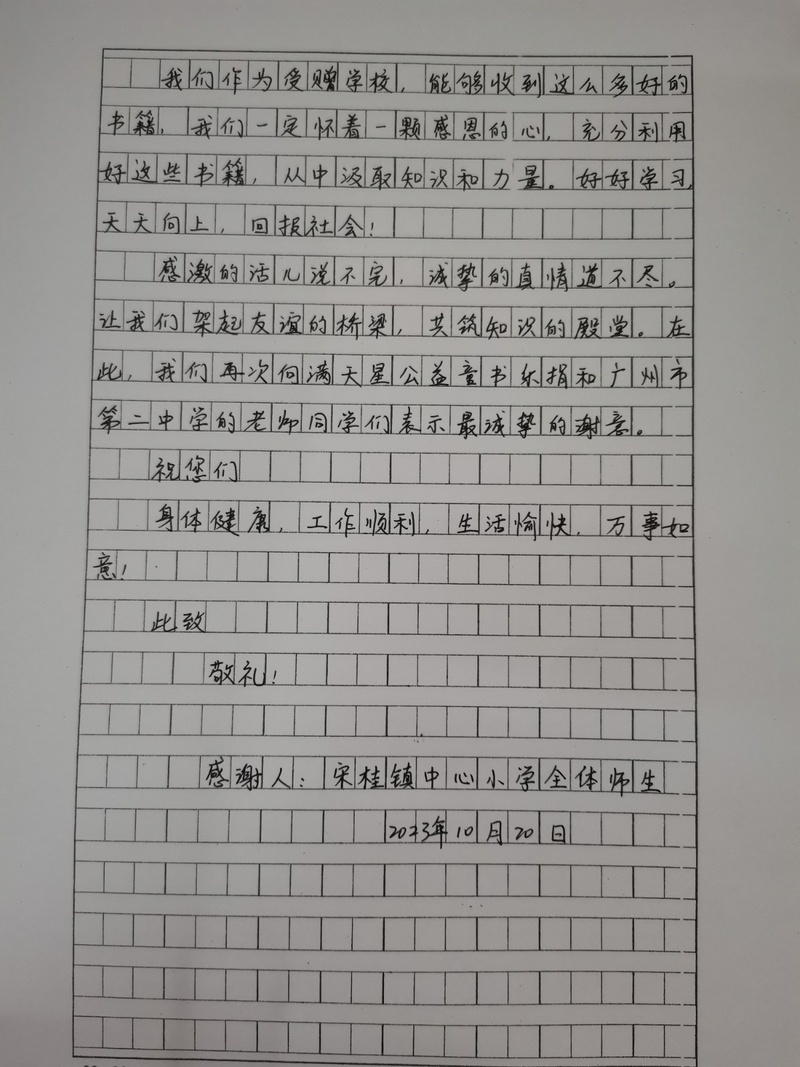 我们作为受赠学校，能够收到这么多好的
书籍，我们一定怀着一颗感恩的心，充分利用
好这些书籍，从中汲取知识和力量。好好学习，
天天向上，回报社会！
感激的话儿说不完，诚挚的真情道不尽。
让我们架起友谊的桥梁，共筑知识的殿堂。在
此，我们再次向满天星公益童书乐捐和广州市
第二中学的老师同学们表示最诚挚的谢意。
祝您们
身体健康，工作顺利，生活愉快，万事如
意！
此致
敬礼！
感谢人：宋桂镇中心小学全体师生
2023年10月20日